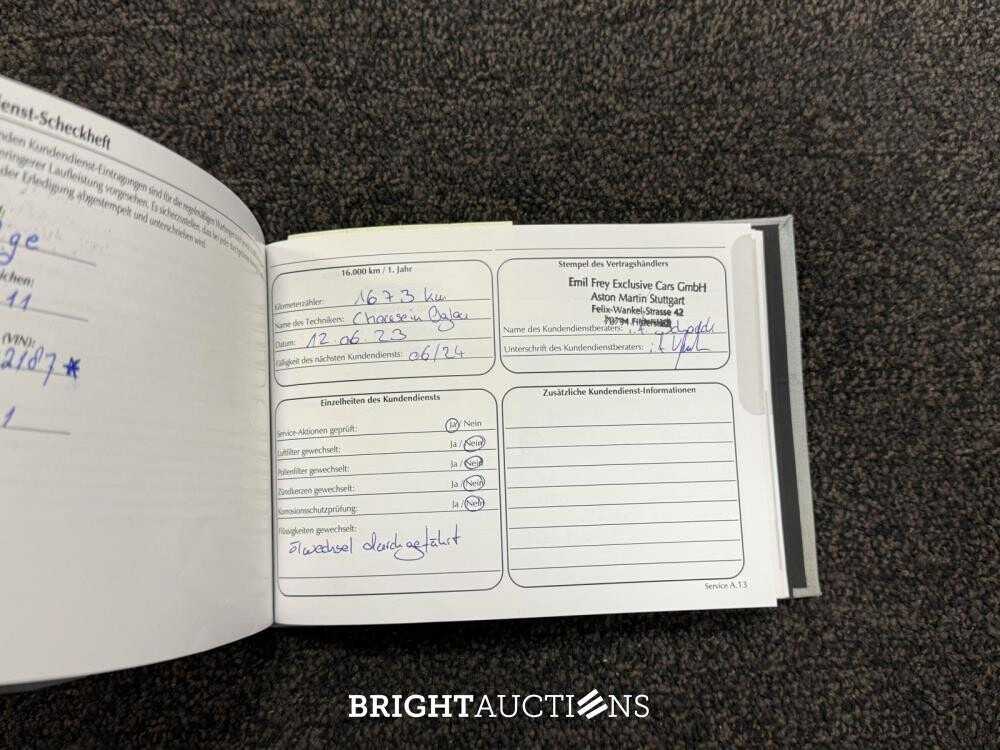 enst-Scheckheft
nden Kundendienst-Eintragungen sind für die regelmäßigen
eringerer Laufleistung vorgesehen. Es sicherzustellen, das bei
der Erledigung abgestempelt und unterschrieben wird.
ge
ichen:
11
(VIN):
2187*
1
16.000 km / 1. Jahr
Kilometerzähler: 1673 km
Name des Techniken:
Datum: 12.06.23
Fälligkeit des nächsten Kundendiensts: 06/24
Stempel des Vertragshändlers
Emil Frey Exclusive Cars GmbH
Aston Martin Stuttgart
Felix-Wankel-Strasse 42
70794 Filderstadt
Name des Kundendienstberaters: i.A.
Unterschrift des Kundendienstberaters: i.A.
Einzelheiten des Kundendiensts
Service-Aktionen geprüft: Ja / Nein
Luftfilter gewechselt: Ja / Nein
Pollenfilter gewechselt: Ja / Nein
Zündkerzen gewechselt: Ja / Nein
Korrosionsschutzprüfung: Ja / Nein
Flüssigkeiten gewechselt:
Ölwechsel durchgeführt
Zusätzliche Kundendienst-Informationen
Service A.13
BRIGHTAUCTIONS